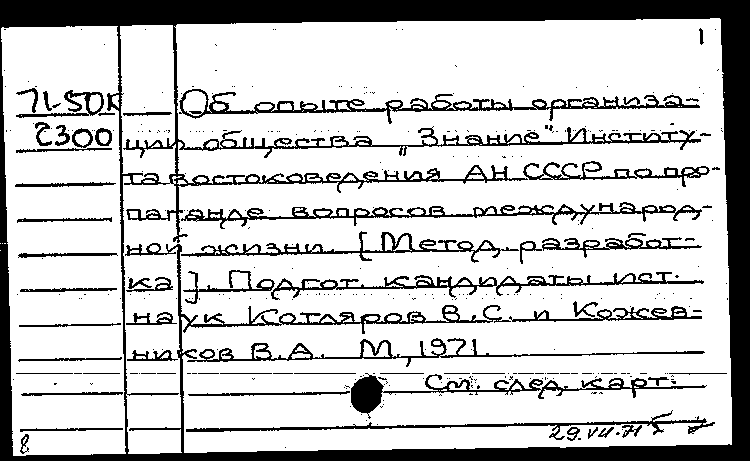 1
71-50к Об опыте работы организа-
2300 ции общества „Знание" Институ-
та востоковедения АН СССР по про-
паганде вопросов международ-
ной жизни. [Метод. разработ-
ка]. Подгот. кандидаты ист.
наук Котляров В.С. и Кожев-
ников В.А. М., 1971.
См. след. карт.
8 29.VII.71